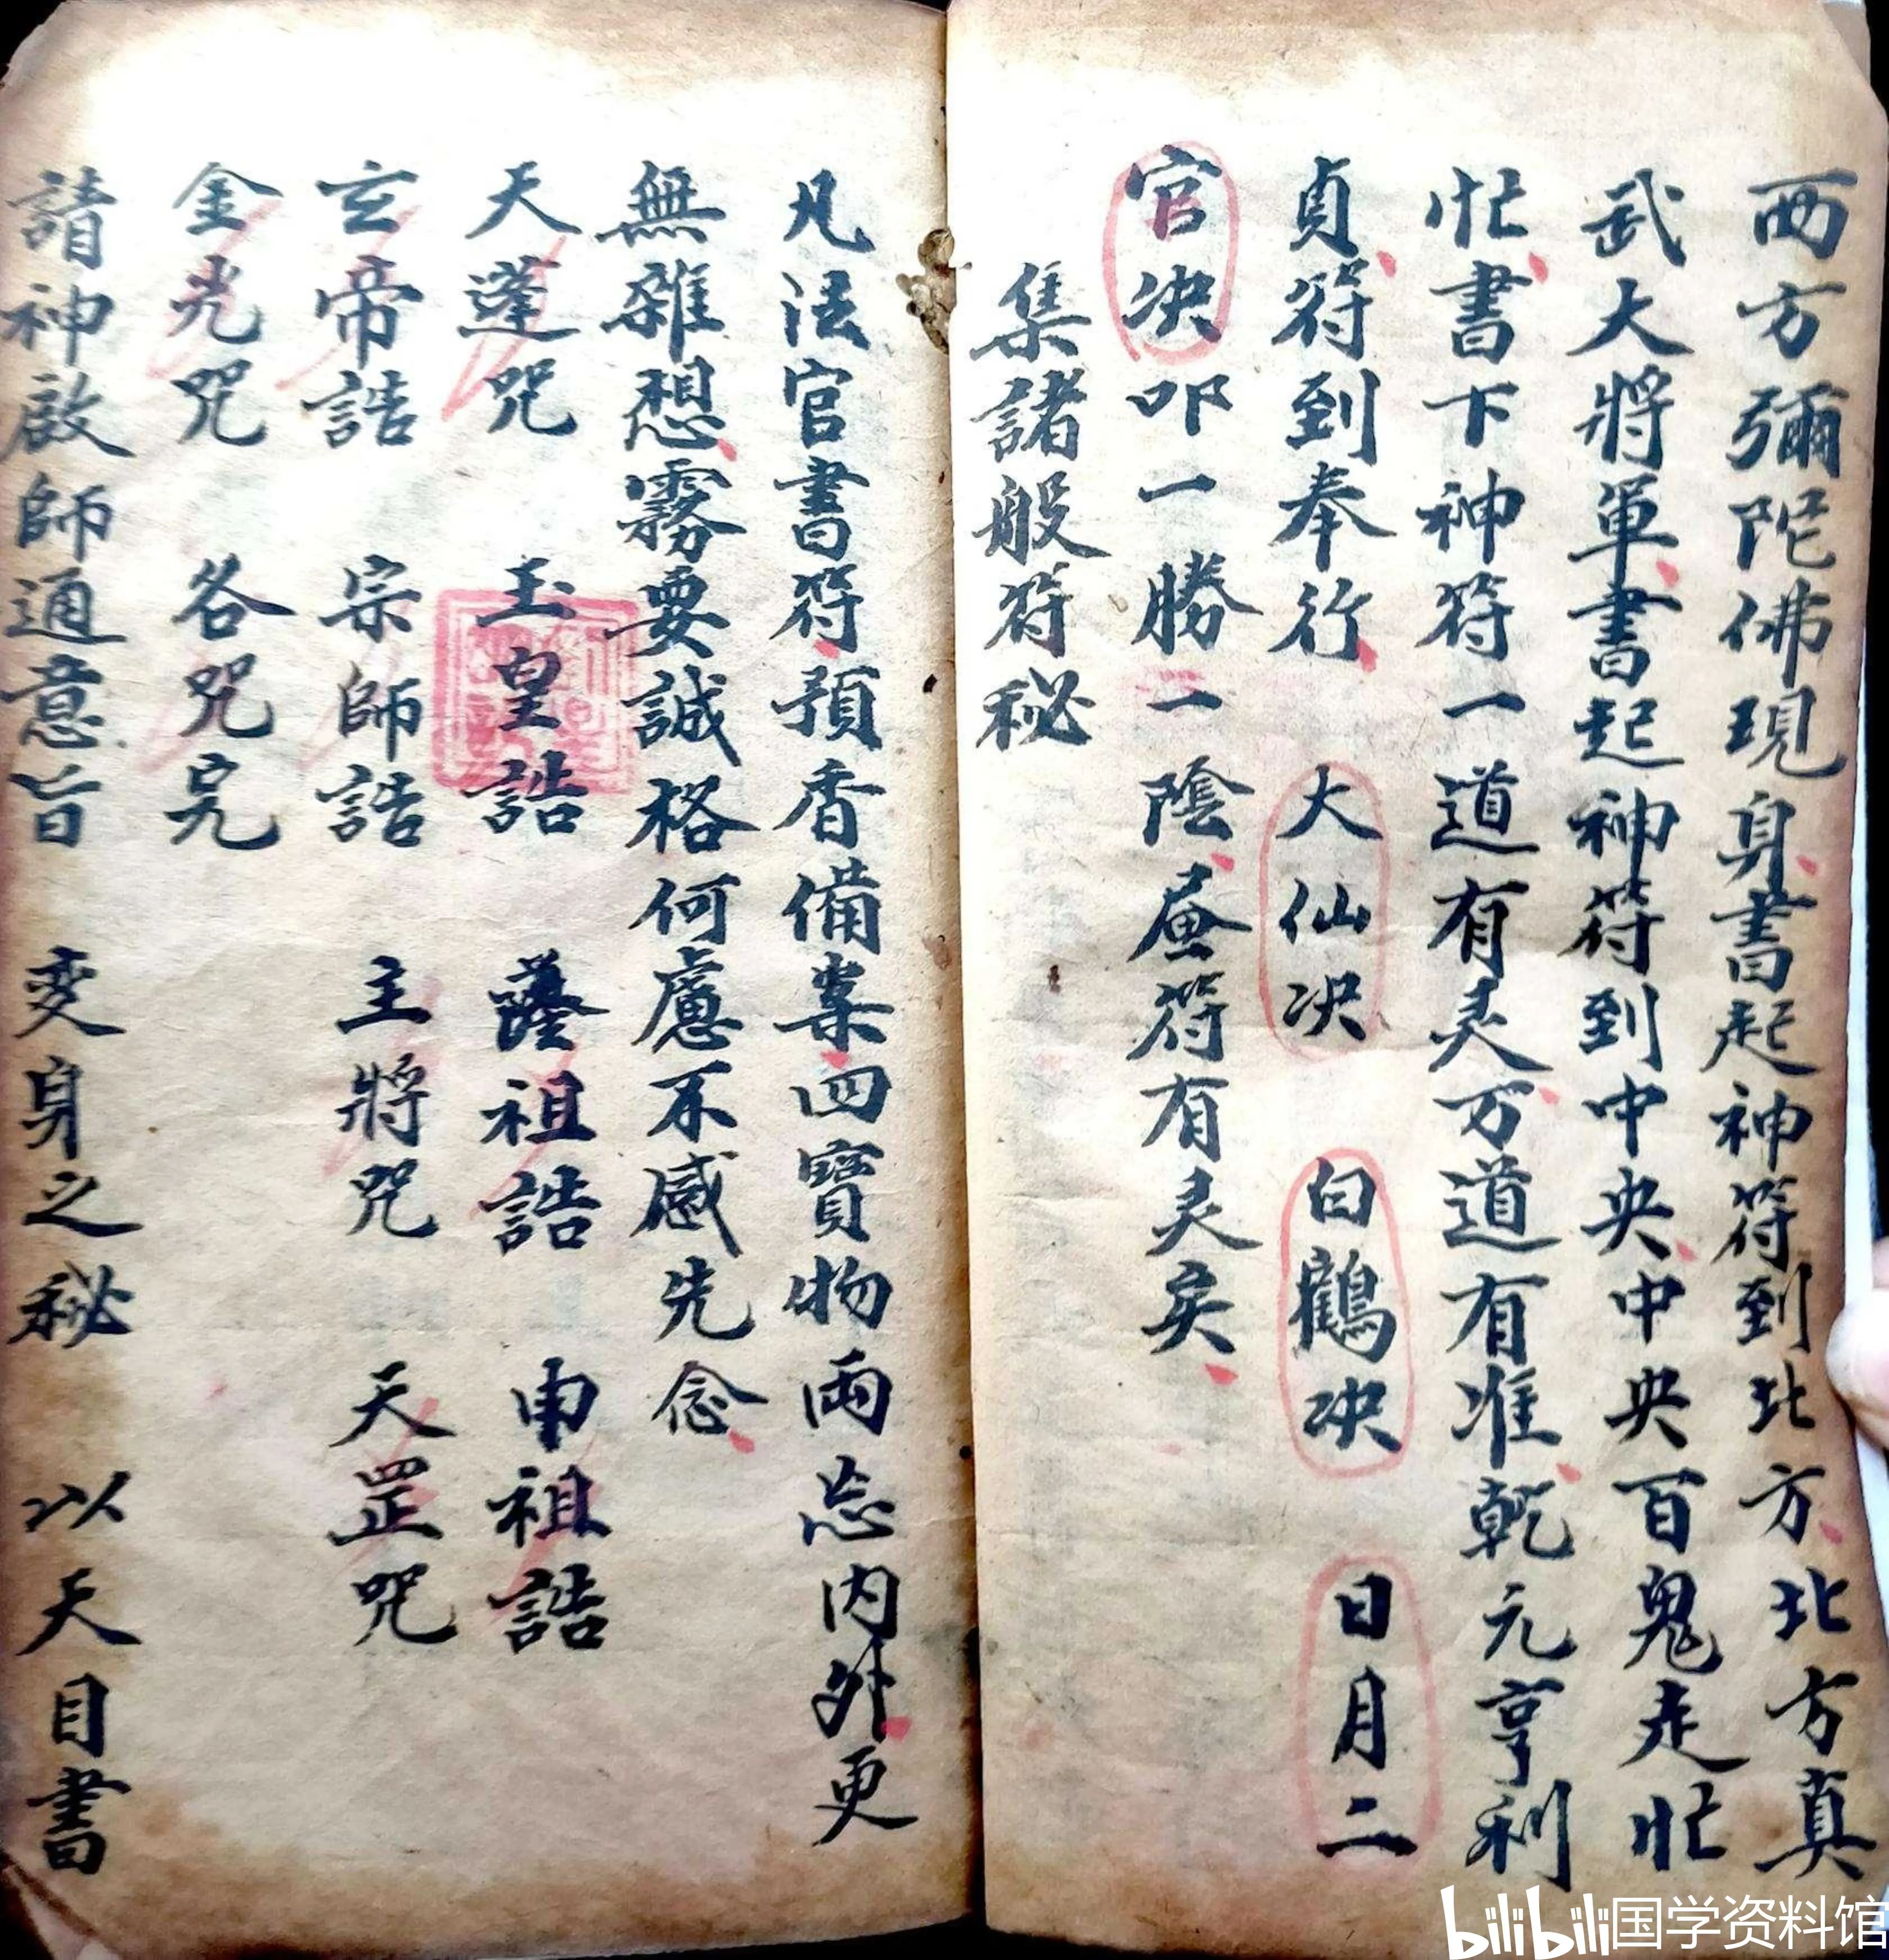 西方彌陀佛現身書起神符到北方北方真
武大將軍書起神符到中央中央百鬼走忙
忙書下神符一道有灵万道有准乾元亨利
貞符到奉行 大仙决 白鶴决 日月二
官决 叩一勝一陰 符有灵矣
集諸般符秘
凡法官書符預香備案四寶物兩忘内外更
無雜想霧要誠格何慮不感先念
天蓬咒 玉皇誥 薩祖誥 申祖誥
玄帝誥 宗師誥 主將咒 天罡咒
金光咒 各咒完
請神啟師通意旨 变身之秘 以天目書
bilibili国学资料馆